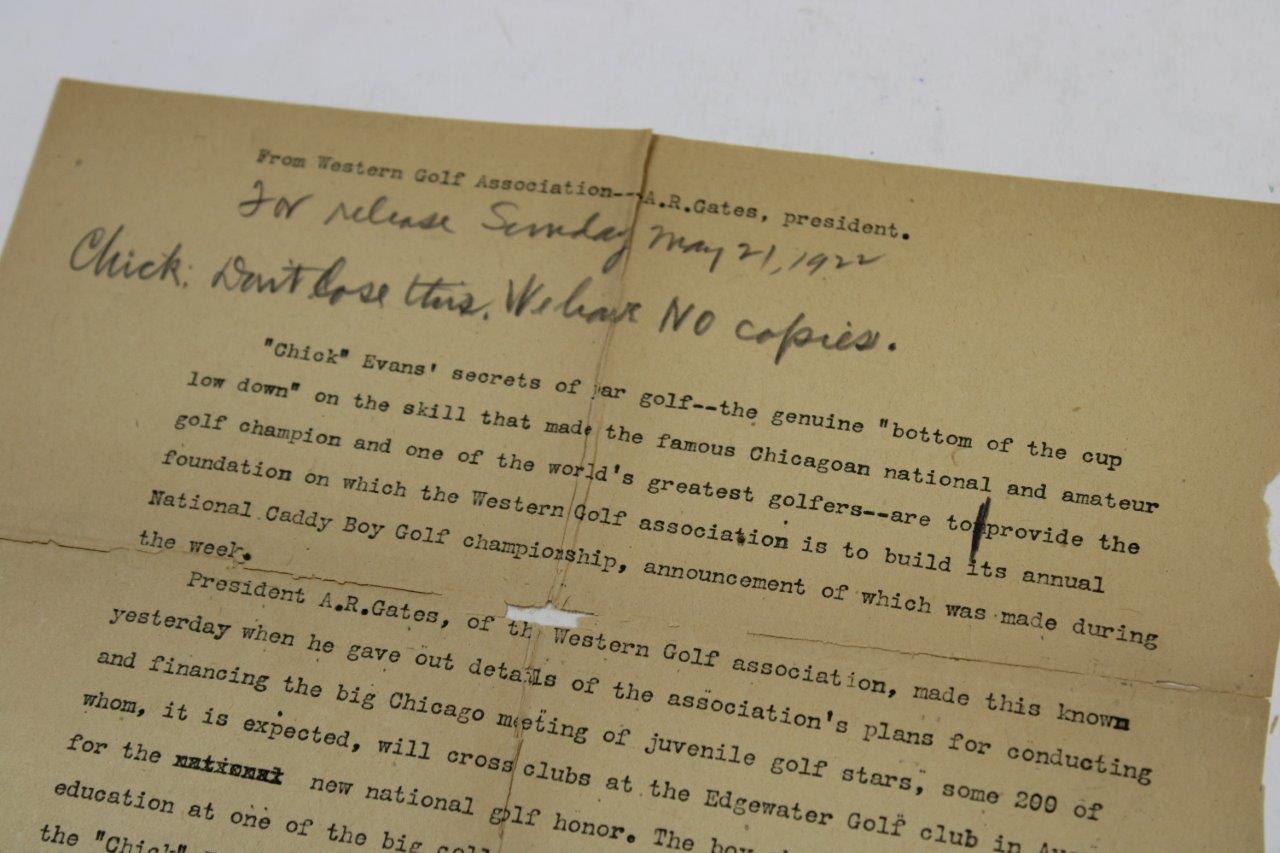 From Western Golf Association---A.R.Gates, president.
For release Sunday May 21, 1922
Chick: Don't lose this. We have NO copies.
"Chick" Evans' secrets of par golf--the genuine "bottom of the cup
low down" on the skill that made the famous Chicagoan national and amateur
golf champion and one of the world's greatest golfers--are to provide the
foundation on which the Western Golf association is to build its annual
National Caddy Boy Golf championship, announcement of which was made during
the week.
President A.R.Gates, of th Western Golf association, made this known
yesterday when he gave out details of the association's plans for conducting
and financing the big Chicago meeting of juvenile golf stars, some 200 of
whom, it is expected, will cross clubs at the Edgewater Golf club in
for the national new national golf honor. The
education at one of the big
the "Chick"